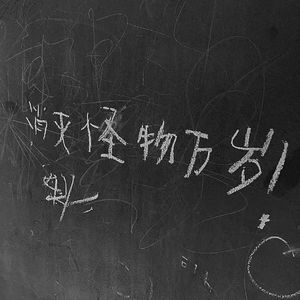 消灭怪物万岁